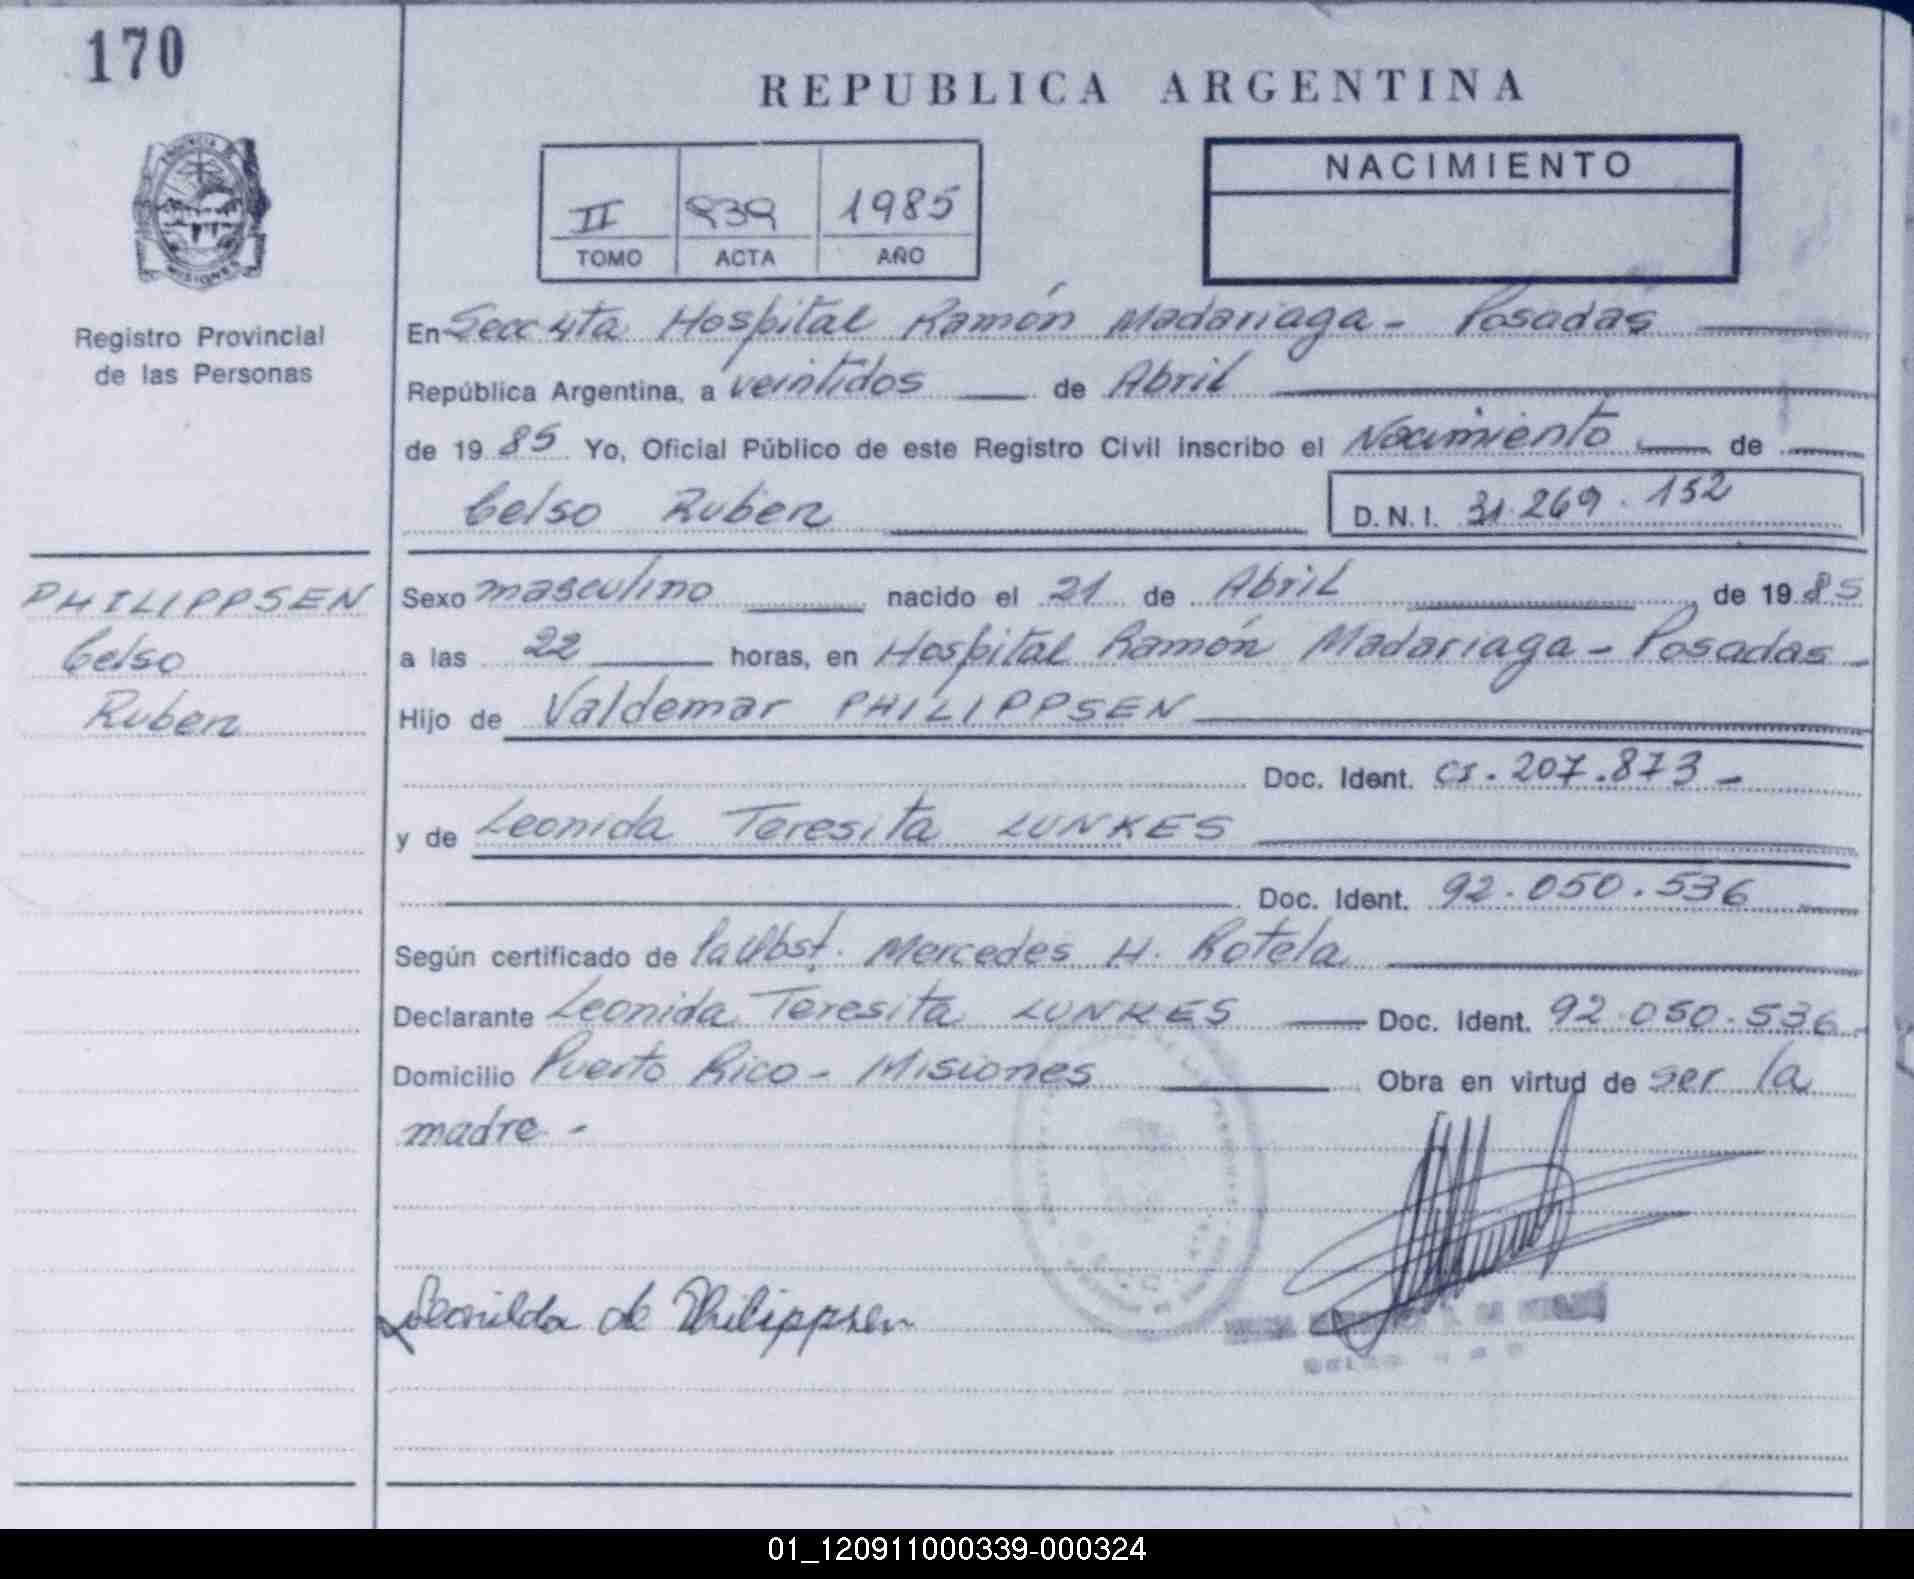 170
REPUBLICA ARGENTINA
NACIMIENTO
II 939 1985
TOMO ACTA AÑO
PROVINCIA DE
MISIONES
Registro Provincial
de las Personas
En Secc 4ta Hospital Ramón Madariaga - Posadas
República Argentina, a veintidos de Abril
de 19 85 Yo, Oficial Público de este Registro Civil inscribo el Nacimiento de
Celso Ruben D.N.I. 31.269.152
PHILIPPSEN
Celso
Ruben
Sexo masculino nacido el 21 de Abril de 19 85
a las 22 horas, en Hospital Ramón Madariaga - Posadas -
Hijo de Valdemar PHILIPPSEN
Doc. Ident. CI. 207.873 -
y de Leonida Teresita LUNKES
Doc. Ident. 92.050.536
Según certificado de la Obst. Mercedes H. Rotela
Declarante Leonida Teresita LUNKES Doc. Ident. 92.050.536 -
Domicilio Puerto Rico - Misiones Obra en virtud de ser la
madre -
Leonilda de Philippsen
01_120911000339-000324